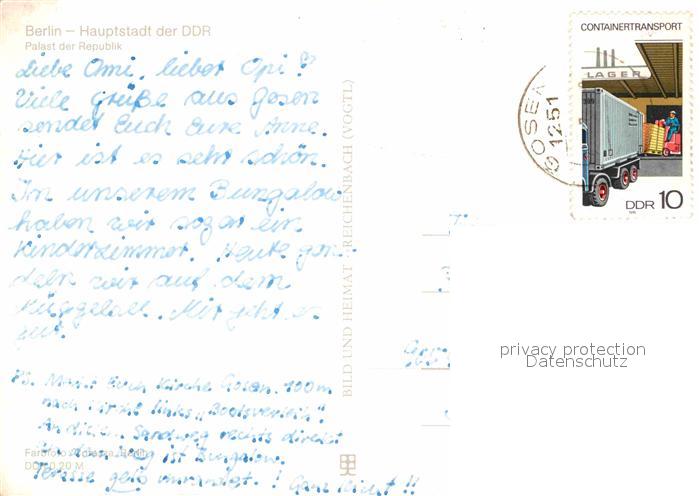 Berlin – Hauptstadt der DDR
Palast der Republik
Liebe Omi, lieber Opi!
Viele grüße aus Gosen
sendet Euch Eure Anne.
Hier ist es sehr schön.
In unserem Bungalow
haben wir sogar ein
Kinderzimmer. Heute gon
deln wir auf dem
Müggelsee. Mir geht es
gut.
PS. Kirche Gosen. 100m
nach links "Bootsverleih"
Sandweg rechts direkt
ist Bungalow.
Terasse gelb umrandet! Ganz leicht!!
Farbfoto:
DDR 0,20 M
BILD UND HEIMAT REICHENBACH (VOGTL)
CONTAINERTRANSPORT
LAGER
DDR 10
GOSEN
1251
privacy protection
Datenschutz